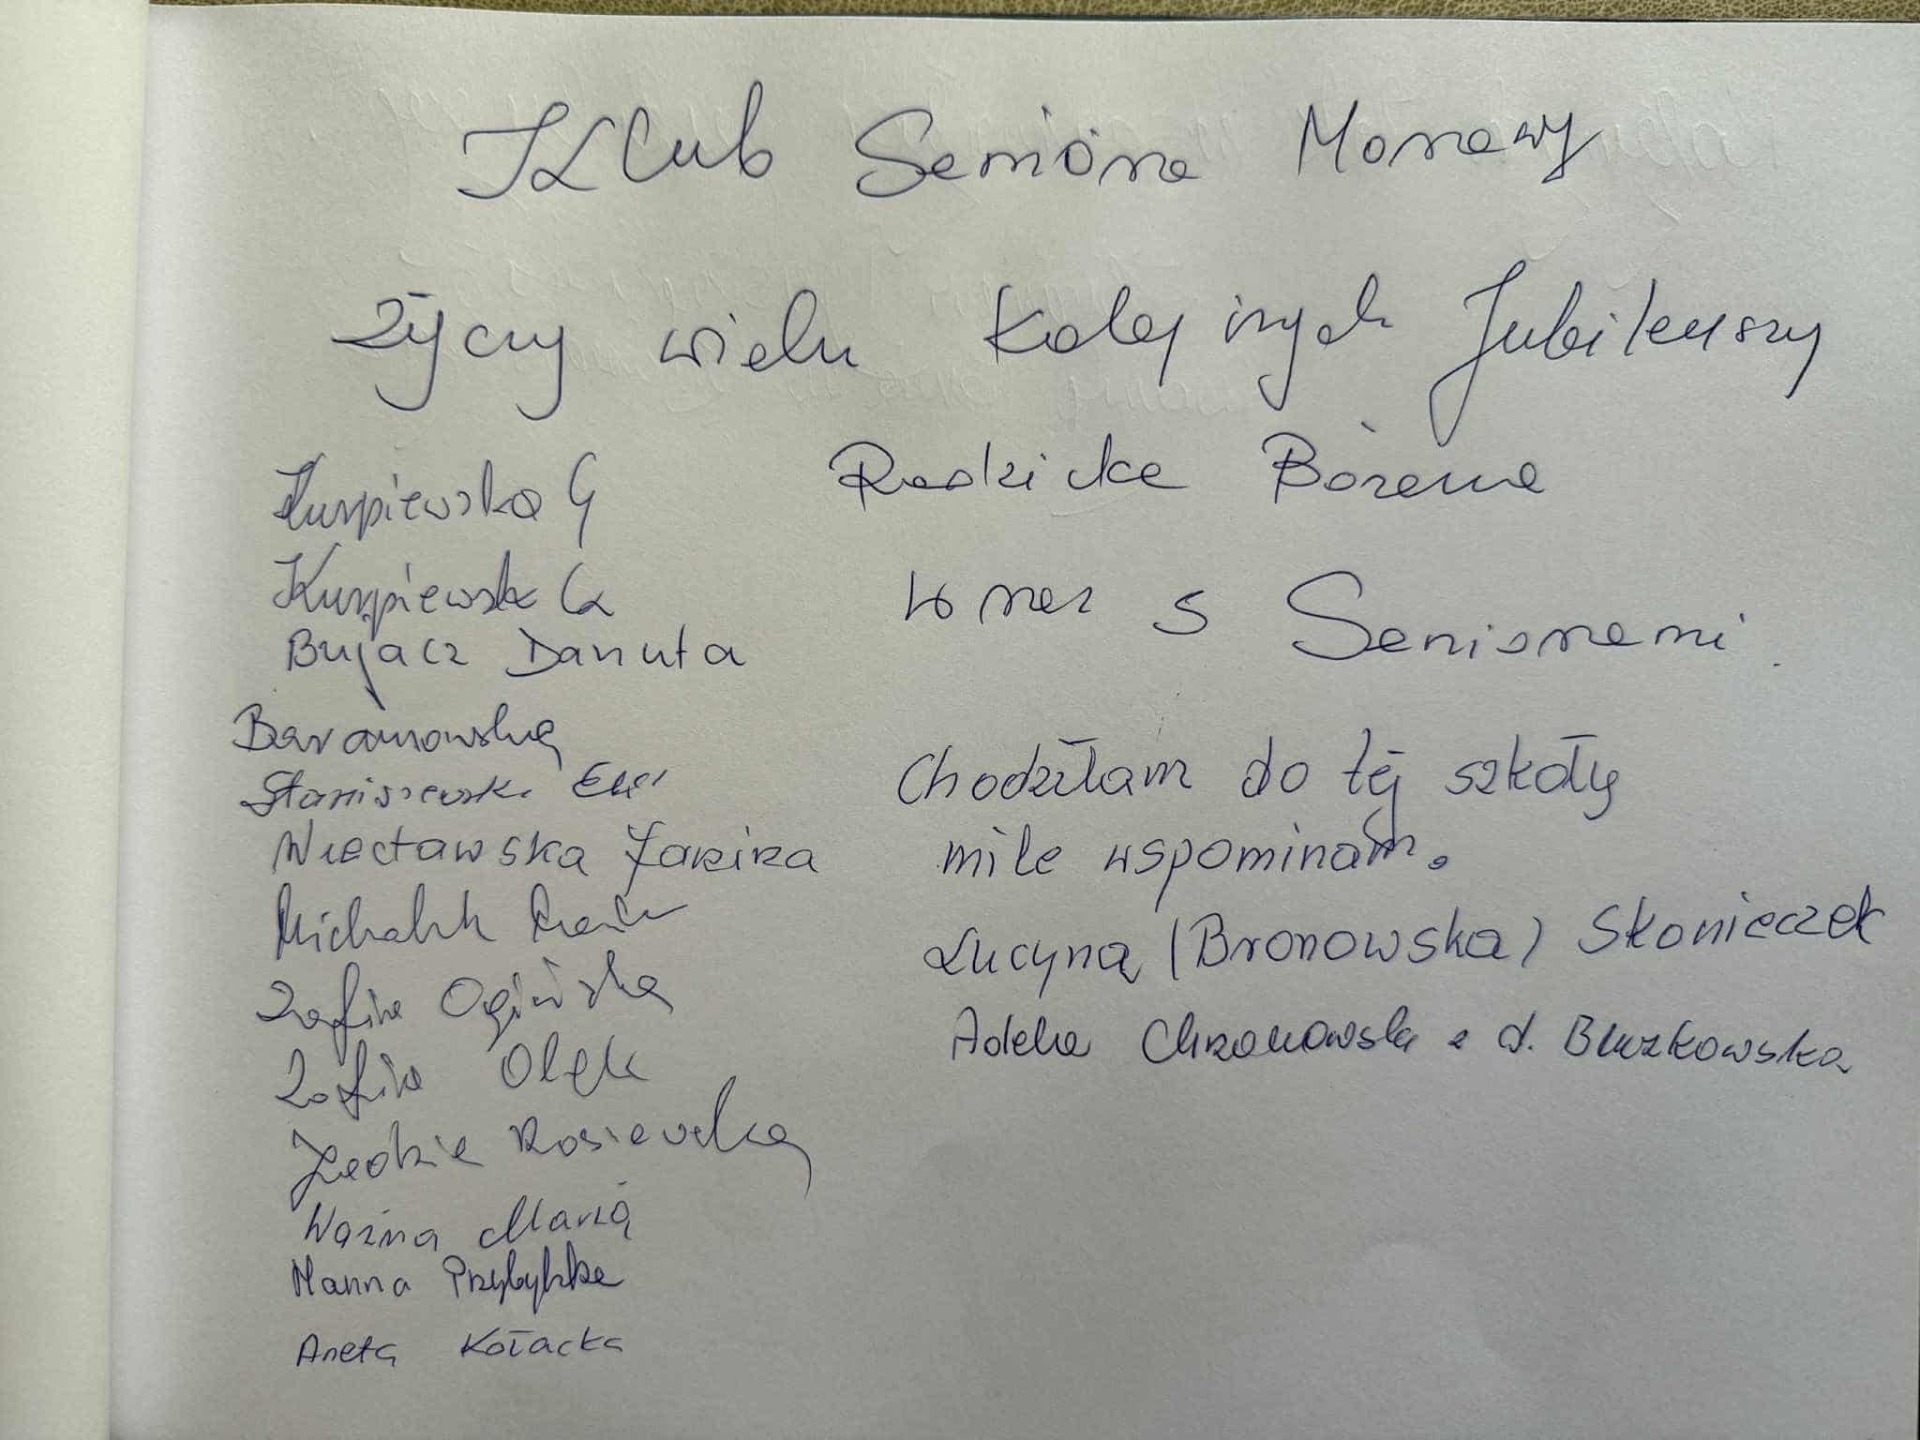 Klub Seniora Morawy
Życzy wielu Kolejnych Jubileuszy
Radzicka Bożena
wraz s Seniorami.
Kurpiewska G
Kurpiewsk G
Bujacz Danuta
Baranowska
Staniszewska Ewa
Więcławska Janina
Michalak
Zofia Ogińska
Zofia Olek
Jadzia Rosiewska
Ważna Maria
Hanna Przybylska
Aneta Kołacka
Chodziłam do tej szkoły
mile wspominam.
Lucyna (Bronowska) Słonieczek
Adela Chrzanowska z d. Buczkowska